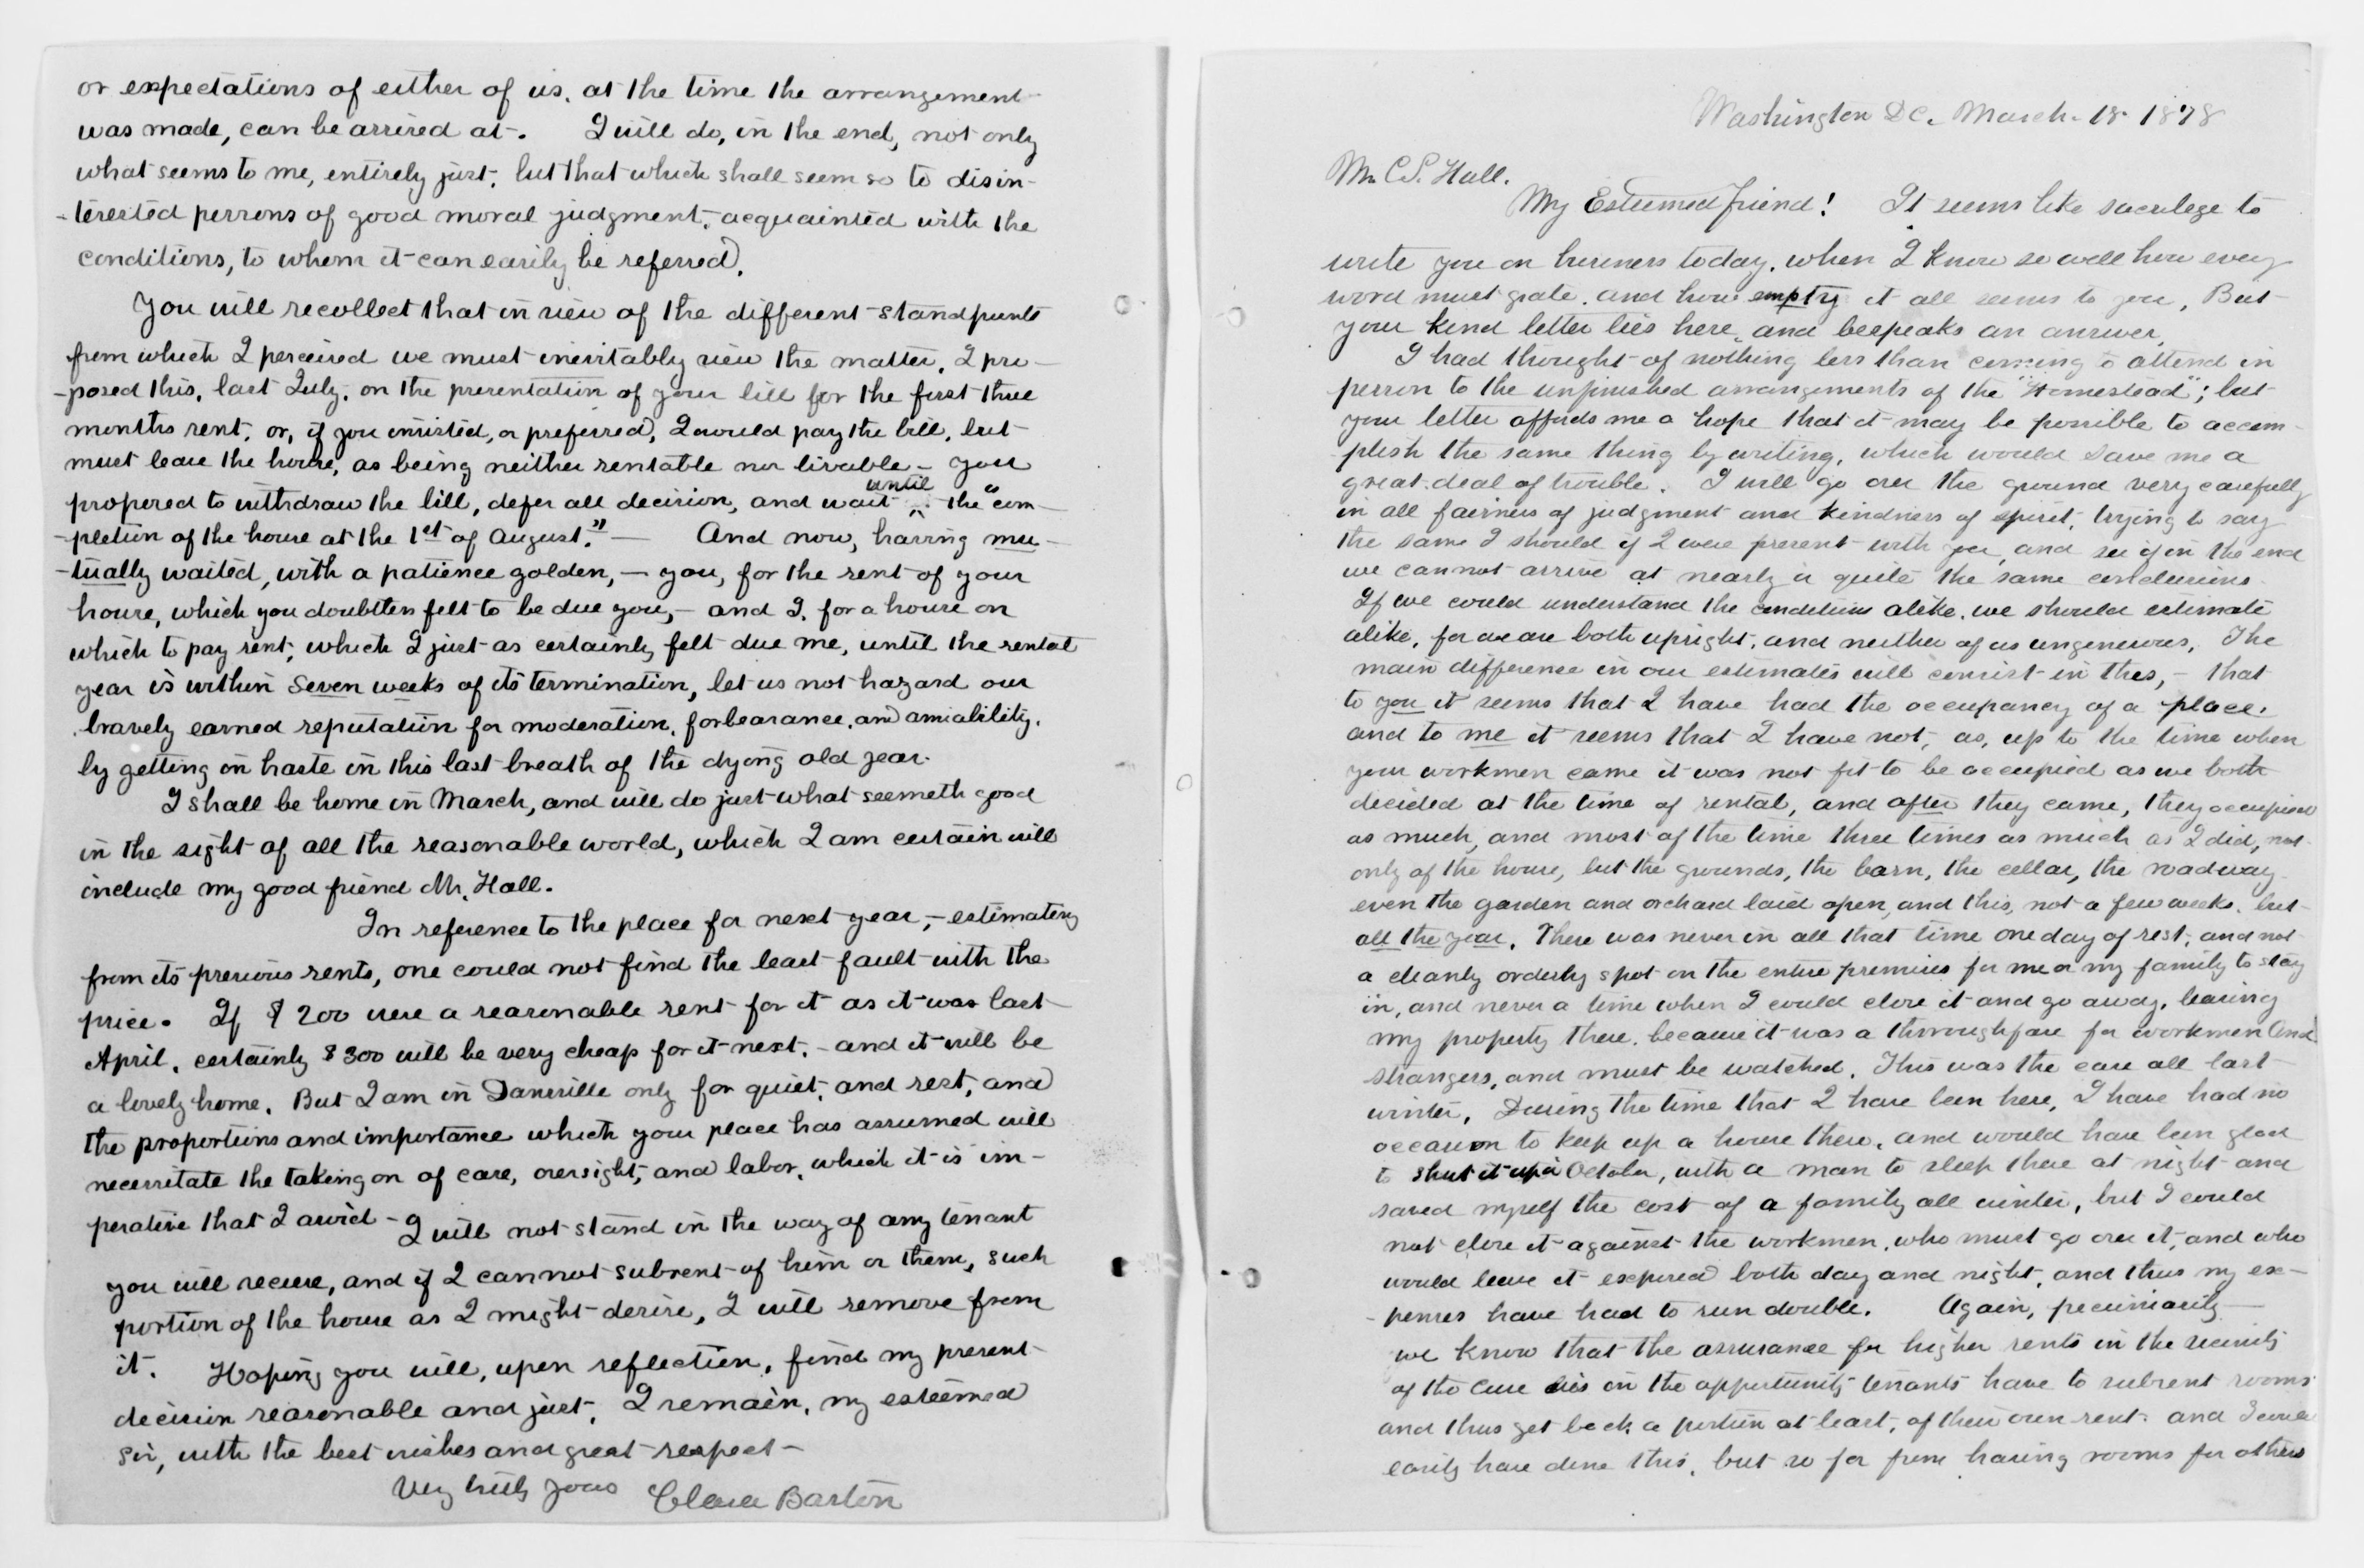 or expectations of either of us, at the time the arrangement
was made, can be arrived at. I will do, in the end, not only
what seems to me, entirely just, but that which shall seem so to disin-
-terested persons of good moral judgment, acquainted with the
conditions, to whom it can easily be referred.
You will recollect that in view of the different standpoints
from which I perceived we must inevitably view the matter, I pro-
-posed this, last July, on the presentation of your bill for the first three
months rent, or, if you insisted, or preferred, I would pay the bill, but
must leave the house, as being neither rentable nor livable - You
proposed to withdraw the bill, defer all decision, and wait until the "com-
-pletion of the house at the 1st of August." — And now, having mu-
-tually waited, with a patience golden, — you, for the rent of your
house, which you doubtless felt to be due you, — and I, for a house on
which to pay rent, which I just as certainly felt due me, until the rental
year is within seven weeks of its termination, let us not hazard our
bravely earned reputation for moderation, forbearance, and amiability,
by getting in haste in this last breath of the dying old year.
I shall be home in March, and will do just what seemeth good
in the sight of all the reasonable world, which I am certain will
include my good friend Mr. Hall.
In reference to the place for next year, - estimating
from its previous rents, one could not find the least fault with the
price. If $200 were a reasonable rent for it as it was last
April, certainly $300 will be very cheap for it next, - and it will be
a lovely home. But I am in Dansville only for quiet, and rest, and
the proportions and importance which your place has assumed will
necessitate the taking on of care, oversight, and labor, which it is im-
perative that I avoid - I will not stand in the way of any tenant
you will secure, and if I cannot subrent of him or them, such
portion of the house as I might desire, I will remove from
it. Hoping you will, upon reflection, find my present
decision reasonable and just, I remain, my esteemed
sir, with the best wishes and great respect -
Very truly yours Clara Barton
Washington DC. March 18 1878
Mr. C.S. Hall.
My Esteemed friend! It seems like sacrilege to
write you on business today, when I know so well how every
word must grate, and how empty it all seems to you, But
your kind letter lies here, and bespeaks an answer,
I had thought of nothing less than coming to attend in
person to the unfinished arrangements of the "Homestead"; but
your letter affords me a hope that it may be possible to accom-
plish the same thing by writing, which would save me a
great deal of trouble. I will go over the ground very carefully
in all fairness of judgment and kindness of spirit, trying to say
the same I should if I were present with you, and see if in the end
we cannot arrive at nearly or quite the same conclusions.
If we could understand the conditions alike, we should estimate
alike, for we are both upright, and neither of us ungenerous, The
main difference in our estimates will consist in this, - that
to you it seems that I have had the occupancy of a place,
and to me it seems that I have not, as, up to the time when
your workmen came it was not fit to be occupied as we both
decided at the time of rental, and after they came, they occupied
as much, and most of the time three times as much as I did, not
only of the house, but the grounds, the barn, the cellar, the roadway
even the garden and orchard laid open, and this, not a few weeks, but
all the year. There was never in all that time one day of rest, and not
a cleanly orderly spot on the entire premises for me or my family to stay
in, and never a time when I could close it and go away, leaving
my property there, because it was a thoroughfare for workmen and
strangers, and must be watched. This was the case all last
winter. During the time that I have been here, I have had no
occasion to keep up a house there, and would have been glad
to shut it up in October, with a man to sleep there at night and
saved myself the cost of a family all winter, but I could
not close it against the workmen, who must go over it, and who
would leave it exposed both day and night, and thus my ex-
-penses have had to run double. Again, pecuniarily —
we know that the assurance for higher rents in the vicinity
of the Cure lies in the opportunity tenants have to subrent rooms
and thus get back a portion at least, of their own rent, and I could
easily have done this, but so far from having rooms for others